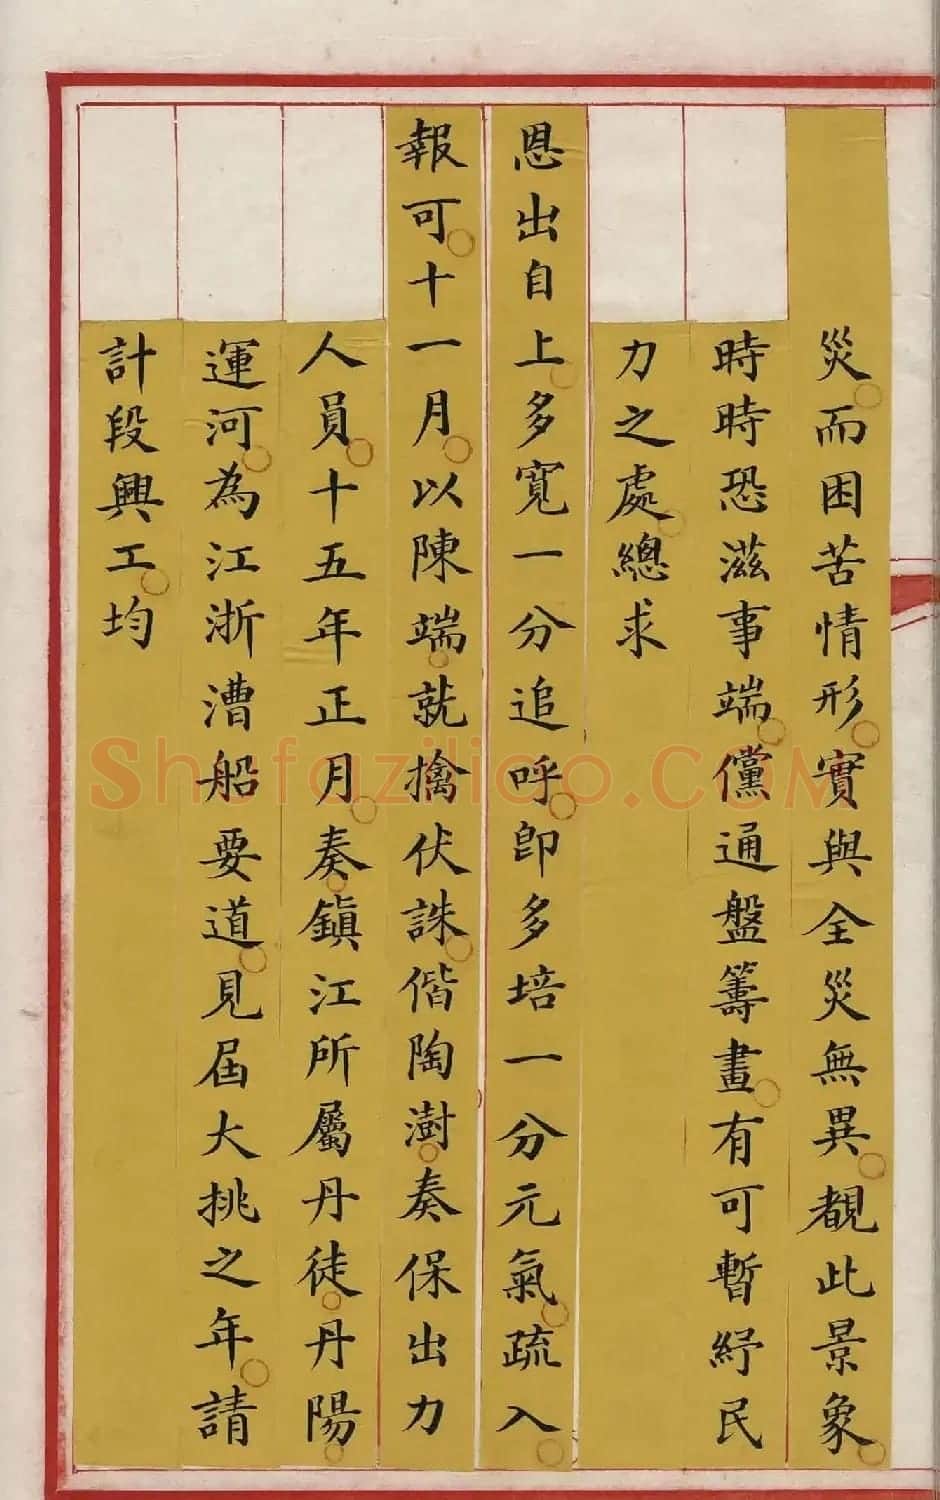 災而困苦情形實與全災無異覩此景象
時時恐滋事端儻通盤籌畫有可暫紓民
力之處總求
恩出自上多寬一分追呼卽多培一分元氣疏入
報可十一月以陳端就擒伏誅偕陶澍奏保出力
人員十五年正月奏鎮江所屬丹徒丹陽
運河為江浙漕船要道見屆大挑之年請
計段興工均
Shufaziliao.COM